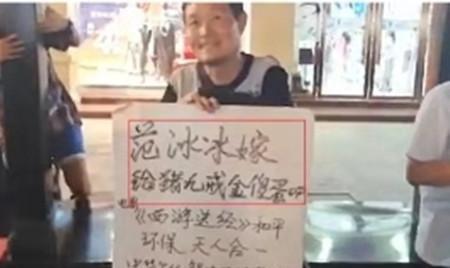 范冰冰嫁
给猪九戒金俊
电影《西游送经》和平
环保 天人合一